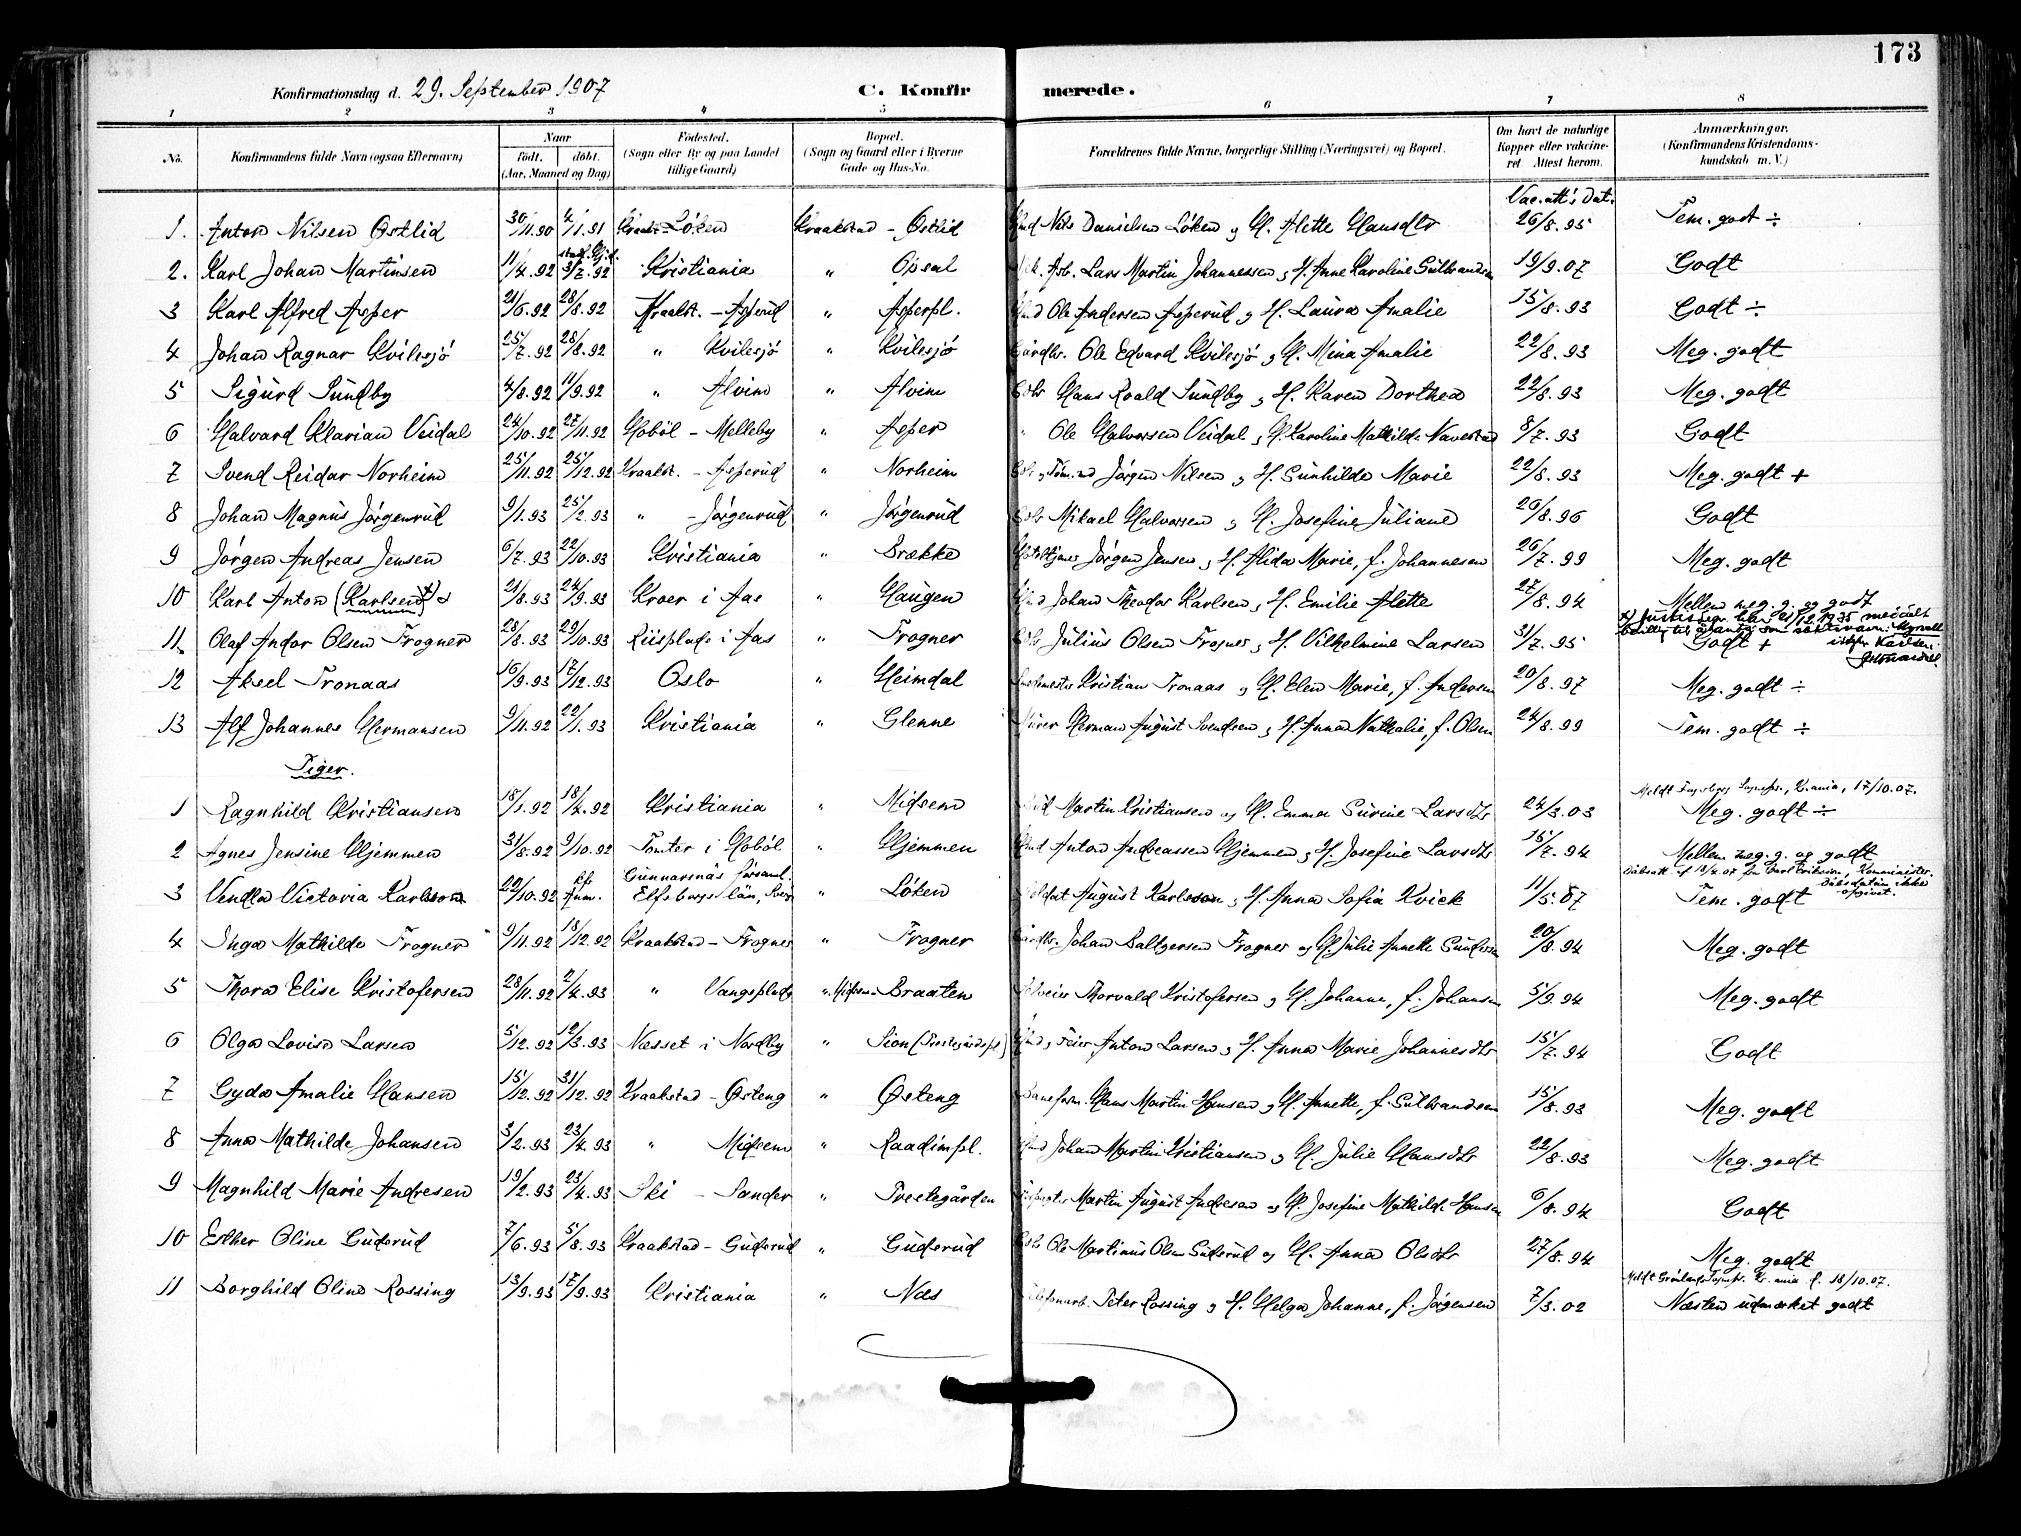 173
Konfirmationsdag d. 29. September 1907 C. Konfirmerede.
1 2 3 4 5 6 7 8
No. Konfirmandens fulde Navn (ogsaa Efternavn) Naar født. døbt. (Aar, Maaned og Dag) Fødested. (Sogn eller By og paa Landet tillige Gaard) Bopæl. (Sogn og Gaard eller i Byerne Gade og Hus-No. Forældrenes fulde Navne, borgerlige Stilling (Næringsvei) og Bopæl. Om havt de naturlige Kopper eller vaccineret. Attest herom. Anmærkninger. (Konfirmandens Kristendomskundskab m. V.)
Vac. att's Dat.
1. Anton Nilsen Østlid 30/11.90 4/1.91 Kraakst. Løken Kraakstad - Østlid Nils Danielsen Løken og H. Alette Hansdtr 26/8.95 Tem. godt ÷
2. Karl Johan Martinsen 11/4.92 3/7.92 Kristiania " Opsal Lars Martin Johannessen og H. Anne Karoline Gulbrandsen 19/9.07 Godt
3 Karl Alfred Asper 21/6.92 28/8.92 Kraakst. - Asperud " Asperpl. Ole Andersen Asperud og H. Laura Amalie 15/8.93 Godt ÷
4 Johan Ragnar Kvilesjö 25/7.92 28/8.92 " Kvilesjö " Kvilesjö Gårdbr. Ole Edvard Kvilesjö og H. Mina Amalie 22/8.93 Meg. godt
5 Sigurd Sundby 4/8.92 11/9.92 " Alvim " Alvim Hans Roald Sundby og H. Karen Dorthea 22/8.93 Meg. godt
6 Halvard Klarian Veidal 24/10.92 27/11.92 Hobøl - Melleby " Asper " Ole Halvorsen Veidal og H. Karoline Mathilde Navestad 8/7.93 Godt
7 Svend Reidar Norheim 25/11.92 25/12.92 Kraakst. - Asperud " Norheim Jørgen Nilsen og H. Gunhilde Marie 22/8.93 Meg. godt +
8 Johan Magnus Jørgenrud 9/1.93 25/2.93 " - Jørgenrud " Jørgenrud Mikael Halvorsen og H. Josefine Juliane 26/8.96 Godt
9 Jørgen Andreas Jensen 6/7.93 22/10.93 Kristiania " Brække Jørgen Jensen og H. Alida Marie, f. Johannesen 26/7.99 Meg. godt
10 Karl Anton (Karlsen) 21/8.93 24/9.93 Kroer i Aas " Haugen Johan Theodor Karlsen og H. Emilie Alette 27/8.94 Mellem meg. g. og godt
11. Olaf Andor Olsen Frogner 28/8.93 29/10.93 Riisplads i Aas " Frogner Julius Olsen Frogner og H. Vilhelmine Larsen 31/7.95 Godt +
12 Aksel Tronaas 16/9.93 17/12.93 Oslo " Heimdal Kristian Tronaas og H. Elen Marie, f. Andersen 20/8.97 Meg. godt ÷
13 Alf Johannes Hermansen 9/11.92 22/1.93 Kristiania " Glenne Murer Herman August Svendsen og H. Anna Nathalie, f. Olsen 24/8.99 Tem. godt ÷
Piger.
1 Ragnhild Kristiansen 18/1.92 18/4.92 Kristiania " Midsem Martin Kristiansen og H. Emma Surine Larsdtr 24/3.03 Meg. godt ÷
2 Agnes Jensine Hjemmen 31/8.92 9/10.92 Tomter i Hobøl " Hjemmen Anton Andreassen Hjemmen og H. Josefine Larsdtr 15/7.94 Mellem meg. g. og godt
Gunnarsnäs församl.
3 Vendla Victoria Karlsson 22/10.92 Elfsborgs län " Løken Soldat August Karlsson og H. Anna Sofia Kvick 11/5.07 Tem. godt
4 Inga Mathilde Frogner 9/11.92 18/12.92 Kraakstad - Frogner " Frogner Gårdbr. Johan Baltzersen Frogner og H. Julie Annette Gundersen 20/8.94 Meg. godt
5 Thora Elise Kristofersen 28/11.92 2/4.93 " Vangsplads " Midsem - Braaten Thorvald Kristofersen og H. Johanne, f. Johansen 5/9.94 Meg. godt
6 Olga Lovisa Larsen 5/12.92 12/3.93 Næsset i Nordby " Sion (Prestegårdspl) Anton Larsen og H. Anna Marie Johannesdtr 15/7.94 Godt
7 Gyda Amalie Hansen 15/12.92 31/12.92 Kraakstad - Østeng " Østeng Baneform. Hans Martin Hansen og H. Annette, f. Gulbrandsen 15/8.93 Meg. godt
8 Anna Mathilde Johansen 3/2.93 23/4.93 " Midsem " Raadimpl. Johan Martin Kristiansen og H. Julie Hansdtr 22/8.93 Meg. godt
9 Magnhild Marie Andresen 19/2.93 23/4.93 Ski - Sander " Prestegården Martin August Andresen og H. Josefine Mathilde Hansen 6/8.94 Godt
10 Esther Oline Guderud 7/6.93 5/8.93 Kraakstad - Guderud " Guderud Ole Martinus Olsen Guderud og H. Anna Olsdtr 27/8.94 Meg. godt
11 Borghild Oline Rossing 13/9.93 17/9.93 Kristiania " Næs Telefonarb. Peter Rossing og H. Helga Johanne, f. Jørgensen 7/3.02 Næsten udmærket godt